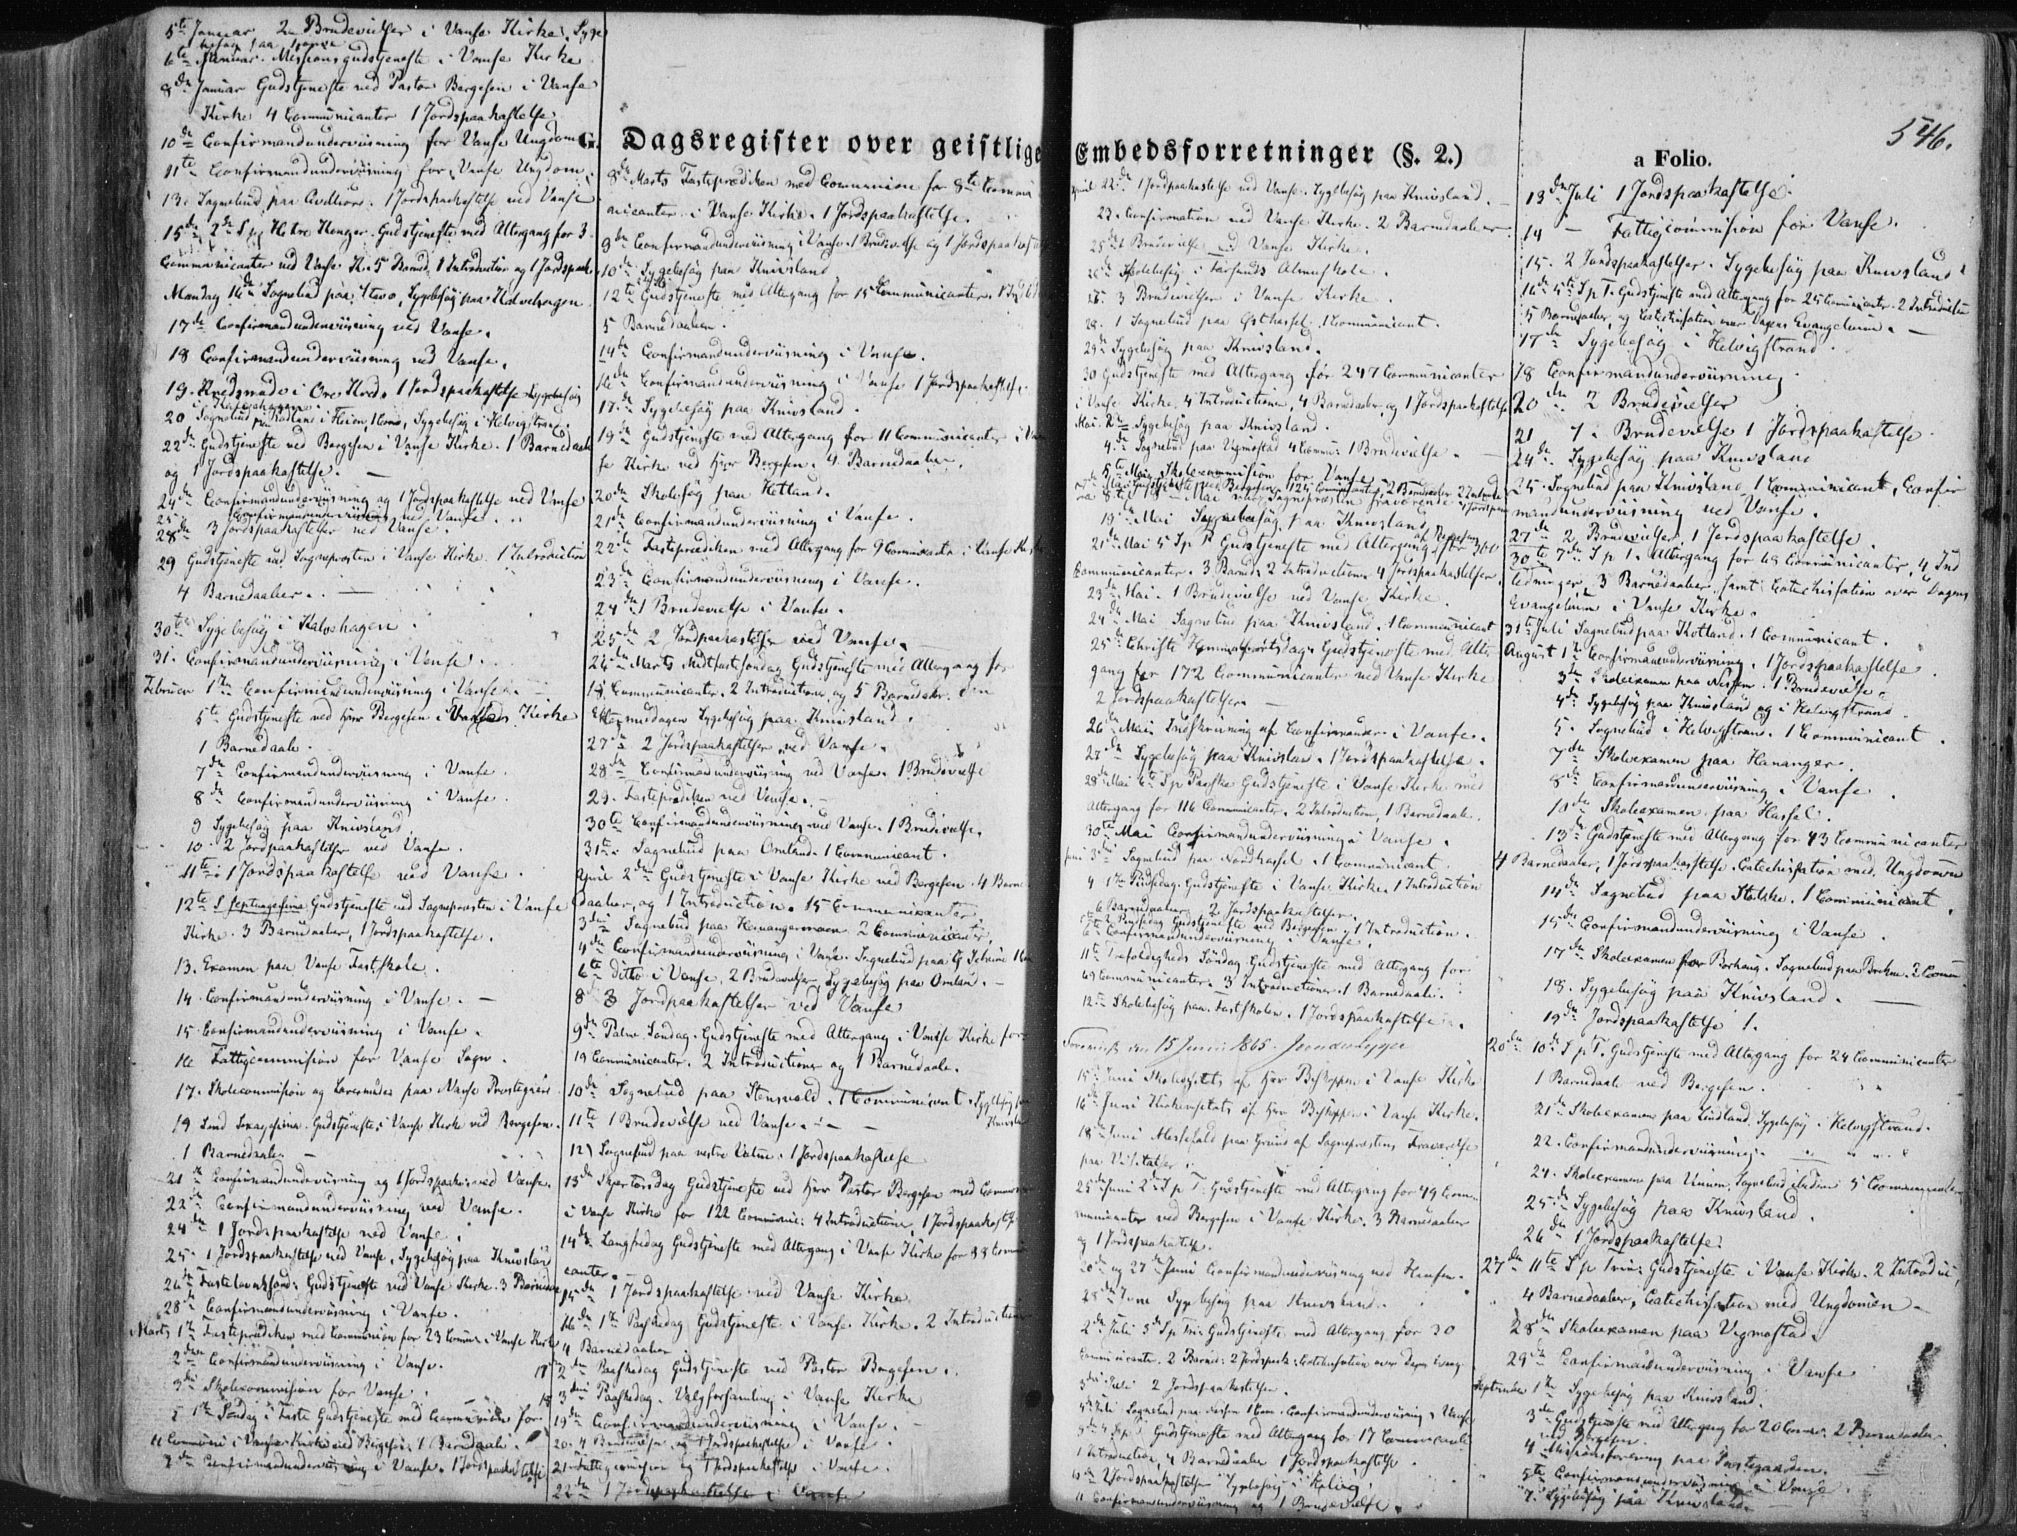 5te Januar 2 Brudevielser i Vanse Kirke. Syge
besøg paa
6te Januar. Missionsgudstjeneste i Vanse Kirke
8de Januar Gudstjeneste ved Pastor Bergesen i Vanse
Kirke 4 Communicanter 1 Jordspaakastelse
10de Confirmandunderviisning for Vanse Ungdom
11te Confirmandunderviisning for Vanse Ungdom
13. Sognebud paa 1 Jordspaakastelse ved Vanse
15de Gudstjeneste med Altergang for 3
Communicanter ved Vanse K. 5 Barned. 1 Introduction og 1 Jordspaak
Mandag 16de Sognebud paa Sygebesøg paa Kalveshagen
17de Confirmandunderviisning ved Vanse.
18 Confirmandunderviisning ved Vanse.
19. Kredsmøde i Øvre Kreds. 1 Jordspaakastelse Sygebesøg
20 Sognebud Sygebesøg i Helvigstrand.
22de Gudstjeneste ved Bergesen i Vanse Kirke. 1 Barnedaab
og 1 Jordspaakastelse.
24de Confirmandunderviisning og 1 Jordspaakastelse ved Vanse
25de Confirmandunderviisning ved Vanse
28de 3 Jordspaakastelser ved Vanse.
29 Gudstjeneste ved Sognepræsten i Vanse Kirke. 1 Introduction
4 Barnedaaber.
30te Sygebesøg i Kalveshagen.
31. Confirmandunderviisning i Vanse.
Februar 1ste Confirmandunderviisning i Vanse.
5te Gudstjeneste ved Herr Bergesen i Vanse Kirke
1 Barnedaab.
7de Confirmandunderviisning i Vanse.
8de Confirmandunderviisning i Vanse.
9 Sygebesøg paa Knivsland
10. 2 Jordpaakastelser ved Vanse.
11te. 1 Jordspaakastelse ved Vanse.
12te S. Septuagesima Gudstjeneste ved Sognepræsten i Vanse
Kirke. 3 Barnedaaber, 1 Jordspaakastelse.
13. Examen paa Vanse Fastskole.
14. Confirmandunderviisning i Vanse.
15 Confirmandunderviisning i Vanse.
16 Fattigcommission for Vanse Sogn.
17. Skolecommission og Lærermøde paa Vanse Præstegaard
19 Sønd Sexagesima. Gudstjeneste i Vanse Kirke ved Bergesen.
1 Barnedaab.
21de Confirmandunderviisning og 1 Jordspaak. ved Vanse.
22de Confirmandunderviisning ved Vanse.
24de 1 Jordspaakastelse ved Vanse.
25. 1 Jordspaakastelse ved Vanse. Sygebesøg paa Knivsland
26de Fastelavnssønd: Gudstjeneste ved Vanse Kirke. 3 Barnedaab
28de Confirmandunderviisning i Vanse.
Marts 1ste Fasteprædiken med Communion for 23 Commun. i Vanse Kirke
2den Confirmandunderviisning i Vanse.
3die Skolecommission for Vanse.
5 1ste Søndag i Faste Gudstjeneste med Communion for
11 Communi i Vanse Kirke ved Bergesen. 1 Barnedaab.
7de Confirmandunderviisning i Vanse. 1 Jordspaakastelse
G. Dagsregister over geistlige
8de Marts Fasteprædiken med Communion for 8te Commu
nicanter i Vanse Kirke. 1 Jordspaakastelse.
9de Confirmandunderviisning i Vanse. 1 Brudevielse og 1 Jordspaakast
10de Sygebesøg paa Knivsland
12te Gudstjeneste med Altergang for 15 Communicanter.
5 Barnedaaber.
14te Confirmandunderviisning i Vanse.
16de Confirmandunderviisning i Vanse 1 Jordspaakastelse.
17de Sygebesøg paa Knivsland.
19de Gudstjeneste med Altergang for 11 Communicanter i Van
se Kirke ved Herr Bergesen. 4 Barnedaaber.
20de Skolebesøg paa Ketland.
21de Confirmandunderviisning i Vanse.
22de Fasteprædiken med Altergang for 9 Communicanter i Vanse Kirke
23de Confirmandunderviisning i Vanse.
24de 1 Brudevielse i Vanse.
25de 2 Jordpaakastelser ved Vanse.
26de Marts Midtfastesøndag Gudstjeneste med Altergang for
15 Communicanter. 2 Introductioner og 5 Barnedaaber. Om
Eftermiddagen Sygebesøg paa Knivsland.
27de 2 Jordspaakastelser ved Vanse.
28de Confirmandunderviisning ved Vanse. 1 Brudevielse
29. Fasteprædiken ved Vanse.
30te Confirmandunderviisning ved Vanse. 1 Brudevielse.
31te Sognebud paa Omland. 1 Communicant.
April 2den Gudstjeneste i Vanse Kirke ved Bergesen. 4 Barne
daaber, og 1 Introduction. 15 Communicanter.
3die Sognebud paa Hanangermoen 2 Communicanter.
4de Confirmandunderviisning i Vanse. Sognebud paa
6te ditto i Vanse, 2 Brudevielser, Sygebesøg paa Omland.
8 3 Jordpaakastelser ved Vanse
9de Palme Søndag. Gudstjeneste med Altergang i Vanse Kirke for
19 Communicanter. 2 Introductioner og 1 Barnedaab.
10de Sognebud paa Stensvold. 1 Communicant. Sygebesøg paa
Knivsland
11te 1 Brudevielse ved Vanse.
12) Sognebud paa vestre Vatne. 1 Jordspaakastelse
13de Skjertorsdag Gudstjeneste ved Herr Pastor Bergesen med Commun
i Vanse Kirke for 122 Communic: 4 Introductioner, 1 Jordspaakast
14de Langfredag Gudstjeneste med Altergang i Vanse Kirke for 88 Communi
canter.
15de 1 Jordspaakastelse ved Vanse Kirke
16de 1ste Paaskedag Gudstjeneste i Vanse Kirke. 2 Introductioner
4 Barnedaaber
17 2den Paaskedag Gudstjeneste ved Pastor Bergesen.
18 3die Paaskedag. Valgforsamling i Vanse Kirke
19de Confirmandunderviisning i Vanse.
20. 4 Brudevielser og 1 Jordspaakastelse i Vanse.
21. Fattigcommission og 1 Jordspaakastelse i Vanse.
22de 1 Jordspaakastelse i Vanse
Embedsforretninger (§. 2.)
April 22de 1 Jordpaakastelse ved Vanse. Sygebesøg paa Knivsland.
23. Confirmation ved Vanse Kirke. 2 Barnedaaber
25de 1 Brudevielse ved Vanse Kirke.
26de Skolebesøg i Farsunds Almueskole.
27. 3 Brudevielser i Vanse Kirke.
28. 1 Sognebud paa Østhassel. 1 Communicant.
29de Sygebesøg paa Knivsland.
30 Gudstjeneste med Altergang for 247 Communicanter
i Vanse Kirke, 4 Introductioner, 4 Barnedaaber, og 1 Jordspaakastelse
Mai. 2den Sygebesøg paa Knivsland.
4de Sognebud paa Vigmostad 4 Commu: 1 Brudevielse.
5te Mai Skolecommission for Vanse
7de Mai Gudstjeneste ved Bergesen 125 Communicanter, 2 Barnedaaber 2 Introdu
19de Mai Sygebesøg paa Knivsland
21de Mai 5 S. p P Gudstjeneste med Altergang for 300
Communicanter. 3 Barned: 2 Introductioner 4 Jordspaakastelser.
23de Mai. 1 Brudevielse ved Vanse Kirke.
24de Mai Sognebud paa Knivsland. 1 Communicant
25de Christi Himmelfartsdag. Gudstjeneste med Alter
gang for 172 Communicanter ved Vanse Kirke
2 Jordspaakastelser.
26de Mai. Indskrivning af Confirmander i Vanse.
27de Sygebesøg paa Knivsland. 1 Jordspaakastelse.
28de Mai 6te S. p Paaske Gudstjeneste i Vanse Kirke med
Altergang for 116 Communicanter. 2 Introductioner, 1 Barnedaab.
30te Mai Confirmandunderviisning i Vanse.
Juni 3die Sognebud paa Nordhassel. 1 Communicant.
4 1ste Pintsedag. Gudstjeneste i Vanse Kirke. 1 Introduction
6 Barnedaaber 2 Jordspaakastelser.
5te 2 Pintsedag Gudstjeneste ved Bergesen. 1 Introduction.
6te Confirmandunderviisning i Vanse.
11te Trefoldigheds Søndag. Gudstjeneste med Altergang for
69 Communicanter. 3 Introductioner. 1 Barnedaab.
12te Skolebesøg paa Fastskolen. 1 Jordspaakastelse.
Foreviist den 15 Juni 1865.
15de Juni Skolevisitats af Herr Biskoppen i Vanse Kirke
16de Juni Kirkevisitats af Herr Biskoppen i Vanse Kirke.
18de Juni Messefald paa Grund af Sognepræstens Fraværelse
paa Visitatser.
25de Juni 2den S. p T. Gudstjeneste med Altergang for 49 Com
municanter ved Bergesen i Vanse Kirke. 3 Barnedaaber
og 1 Jordspaakastelse.
20de og 27de Juni Confirmandunderviisning ved Vanse.
28de June Sygebesøg paa Knivsland.
2den Juli 3de S. p Tri: Gudstjeneste med Altergang for 30
Communicanter. 2 Barned: 2 Jordspaak: Catechisation over Dagens Evang.
3die Juli 2 Jordspaakastelser.
4de Juli Sognebud paa 1 Com. Confirmandunderviisning i Vanse
4 S. p T Gudstjeneste med Altergang for 17 Communicanter
1 Introduction, 4 Barnedaaber 1 Jordspaakastelse.
2 Jordspaakastelser Sygebesøg i Helvig.
11 Confirmandunderviisning og 1 Brudevielse.
546.
a Folio.
13de Juli 1 Jordspaakastelse.
14 – Fattigcommission for Vanse.
15. 2 Jordspaakastelser. Sygebesøg paa Knivsland
16de 5te S. p T. Gudstjeneste med Altergang for 25 Communicanter. 2 Introductio
5 Barnedaaber, og Catechisation over Dagens Evangelium.
17de Sygebesøg i Helvigstrand.
18 Confirmandunderviisning
20de 2 Brudevielser
21 1 Brudevielse 1 Jordspaakastelse
24de Sygebesøg paa Knivsland
25. Sognebud paa Knivsland 1 Communicant, Confir
mandunderviisning ved Vanse.
27de 2 Brudevielser, 1 Jordspaakastelse.
30te 7de S. p T. Altergang for 48 Communicanter, 4 Ind
ledninger, 3 Barnedaaber, samt Catechisation over Dagens
Evangelium i Vanse Kirke.
31te Juli Sognebud paa Kotland. 1 Communicant.
August 1ste Confirmandunderviisning. 1 Jordspaakastelse.
3de Skoleexamen paa 1 Brudevielse.
4de Sygebesøg paa Knivsland og i Helvigstrand
5. Sognebud i Helvigstrand. 1 Communicant.
7de Skoleexamen paa Hananger.
8de Confirmandunderviisning i Vanse.
10de Skoleexamen paa Hassel.
13de Gudstjeneste med Altergang for 43 Communicanter
4 Barnedaaber, 1 Jordspaakastelse. Catechisation med Ungdommen
14de Sognebud paa Stokke. 1 Communicant.
15de Confirmandunderviisning i Vanse.
17de Skoleexamen paa Borhaug. Sognebud paa Brekne. 2 Commu
18. Sygebesøg paa Knivsland.
19de Jordspaakastelse 1.
20de 10de S. p T. Gudstjeneste med Altergang for 24 Communicanter
1 Barnedaab ved Bergesen.
21de Skoleexamen paa Lindland. Sygebesøg i Helvigstrand.
22. Confirmandunderviisning.
24. Skoleexamen paa Sognebud 5 Communicanter
25de Sygebesøg paa Knivsland.
26de 1 Jordspaakastelse.
27de 11te S. p Trin: Gudstjeneste i Vanse Kirke. 2 Introduc
4 Barnedaaber, Catechisation med Ungdommen
28de Skoleexamen paa Vigmostad.
29de Confirmandunderviisning i Vanse
September 1ste Sygebesøg paa Knivsland.
3de Gudstjeneste med Altergang for 20 Comm: 2 Barnedaaber
ved Bergesen.
4 Missionsforening paa Præstegaarden.
5te Confirmandunderviisning i Vanse
7. Sygebesøg paa Knivsland